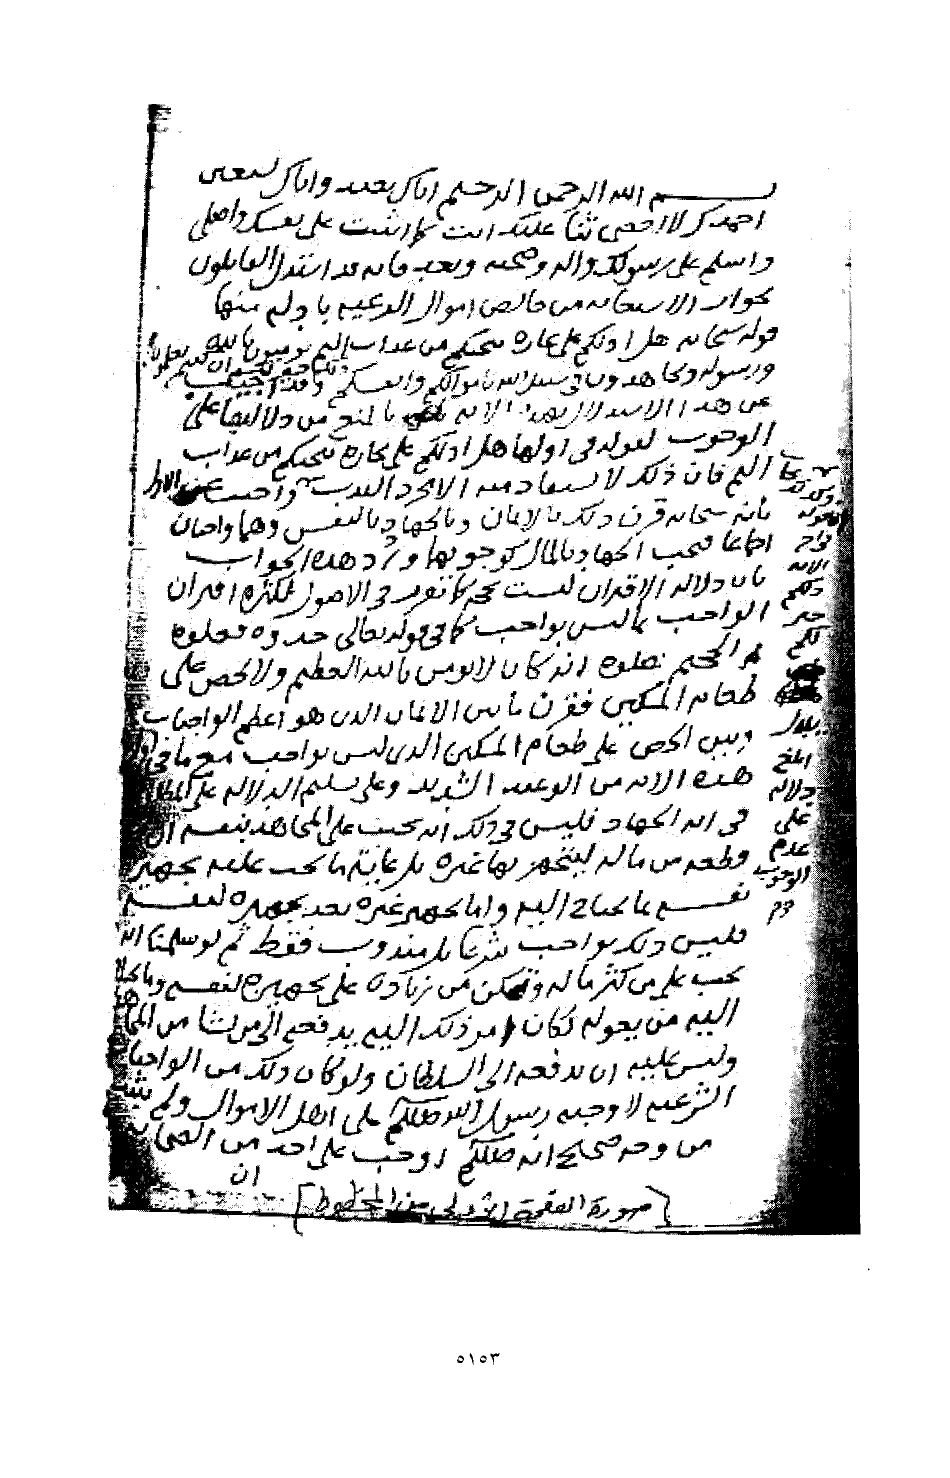 بسم الله الرحمن الرحيم اياك نعبد واياك نستعين
احمدك لا احصي ثنا عليك انت كما اثنيت على نفسك واصلي
واسلم على رسولك واله وصحبه وبعد فانه قد استدل القايلون
بجواز الاستعانه من خالص اموال الرعيه بادله منها
قوله سبحانه هل ادلكم على تجارة تنجيكم من عذاب اليم تومنون بالله
ورسوله وتجاهدون في سبيل الله باموالكم وانفسكم ذلكم خير لكم ان كنتم تعلمون وقد اجيب
عن هذا الاستدلال بهذه الايه بالمنع من دلالتها على
الوجوب لقوله في اولها هل ادلكم على تجارة تنجيكم من عذاب
اليم فان ذلك لا يستفاد منه الا مجرد الندب واجيب عن
بانه سبحانه قرن ذلك بالايمان وبالجهاد بالنفس وهما واجبان
اجماعا فيجب الجهاد بالمال كوجوبهما ورد هذا الجواب
بان دلاله الاقتران ليست بحجه كما تقرر في الاصول لكثرة اقتران
الواجب بما ليس بواجب كما في قوله تعالى خذوه فغلوه
ثم الجحيم صلوه انه كان لا يومن بالله العظيم ولا يحض على
طعام المسكين فقرن ما بين الايمان الذي هو اعظم الواجبات
وبين الحض على طعام المسكين الذي ليس بواجب مع ما في
هذه الايه من الوعيد الشديد وعلى تسليم الدلاله على
في ايه الجهاد فليس في ذلك انه يجب على المجاهد بنفسه ان
قطعه من ماله ليتجهز بها غيره بل غاية ما يجب عليه تجهيز
نفسه بما يحتاج اليه واما تجهيز غيره بعد تجهيزه لنفسه
فليس ذلك بواجب شرعا بل مندوب فقط ثم لو سلمنا انه
يجب على من كثر ماله وتمكن من زيادة على تجهيزه لنفسه وما يحتاج
اليه من يعوله لكان امر ذلك اليه يدفعه الى من يشا من
وليس عليه ان يدفعه الى السلطان ولو كان ذلك من الواجبات
الشرعيه لاوجبه رسول الله صلى الله عليه وسلم على اهل الاموال ولم يثبت
من وجه صحيح انه صلى الله عليه وسلم اوجب على احد من الصحابه
ان
وكذلك
قوله
الايه
ذلكم
خير
لكم
يدل
على
عدم
الوجوب
[صورة الصفحة الأولى من المخطوط]
٥١٥٣